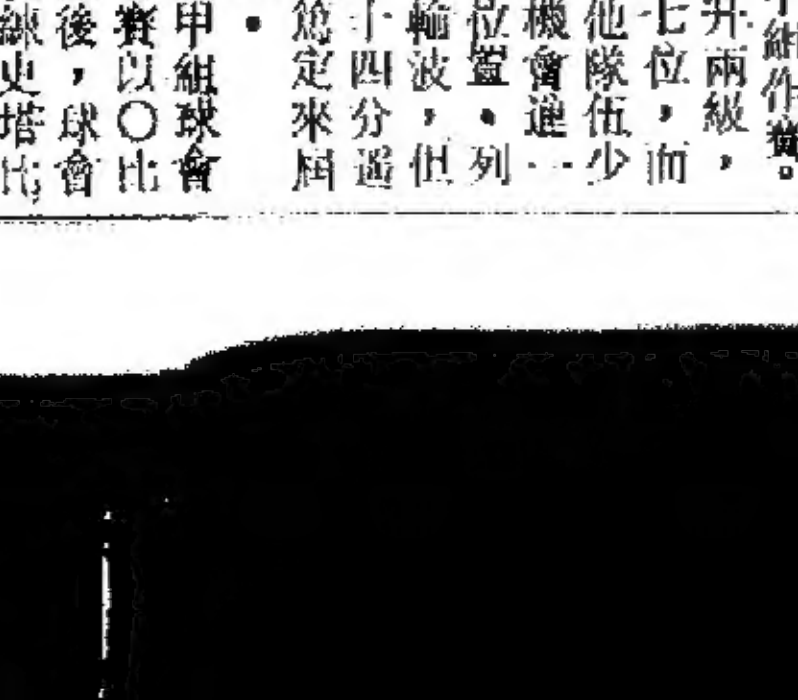 組作賽。
升兩級，
七位，而
他隊伍少
機會選一
位置．列
輸波，但
十四分遥
篤定來屆
．
甲組球會
賽以〇比
後，球會
練史塔比